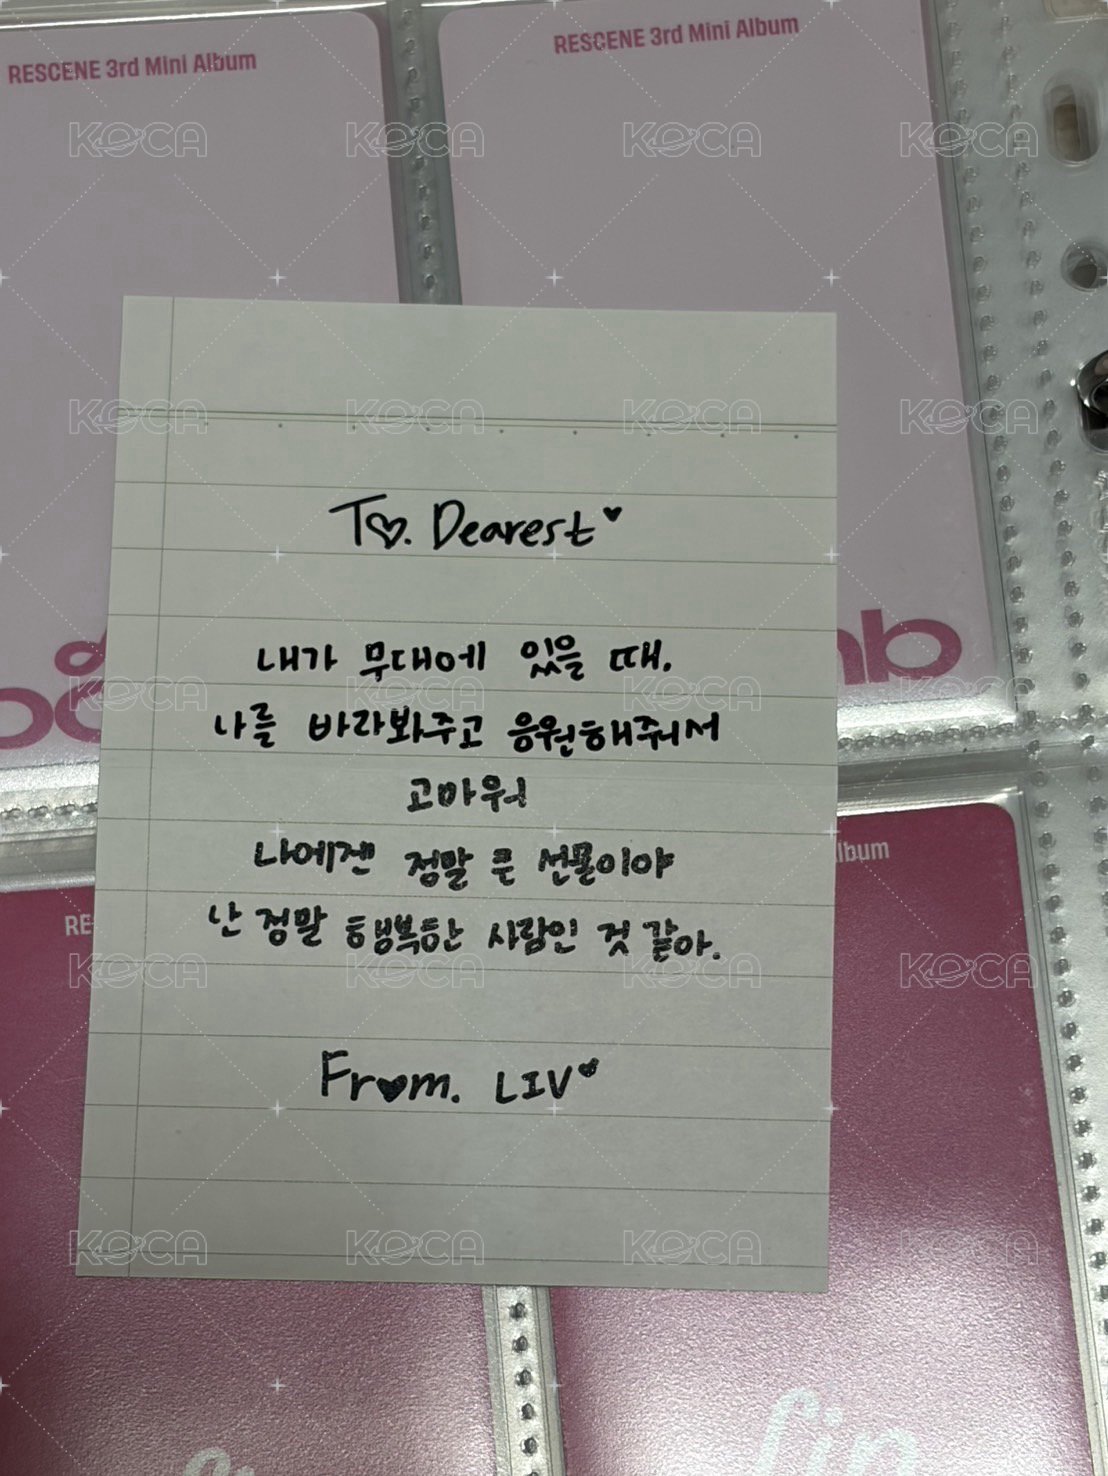 RESCENE 3rd Mini Album
RESCENE 3rd Mini Album
To. Dearest
내가 무대에 있을 때.
나를 바라봐주고 응원해줘서
고마워
나에겐 정말 큰 선물이야
난 정말 행복한 사람인 것 같아.
From. LIV
lbum
RE
KOCA